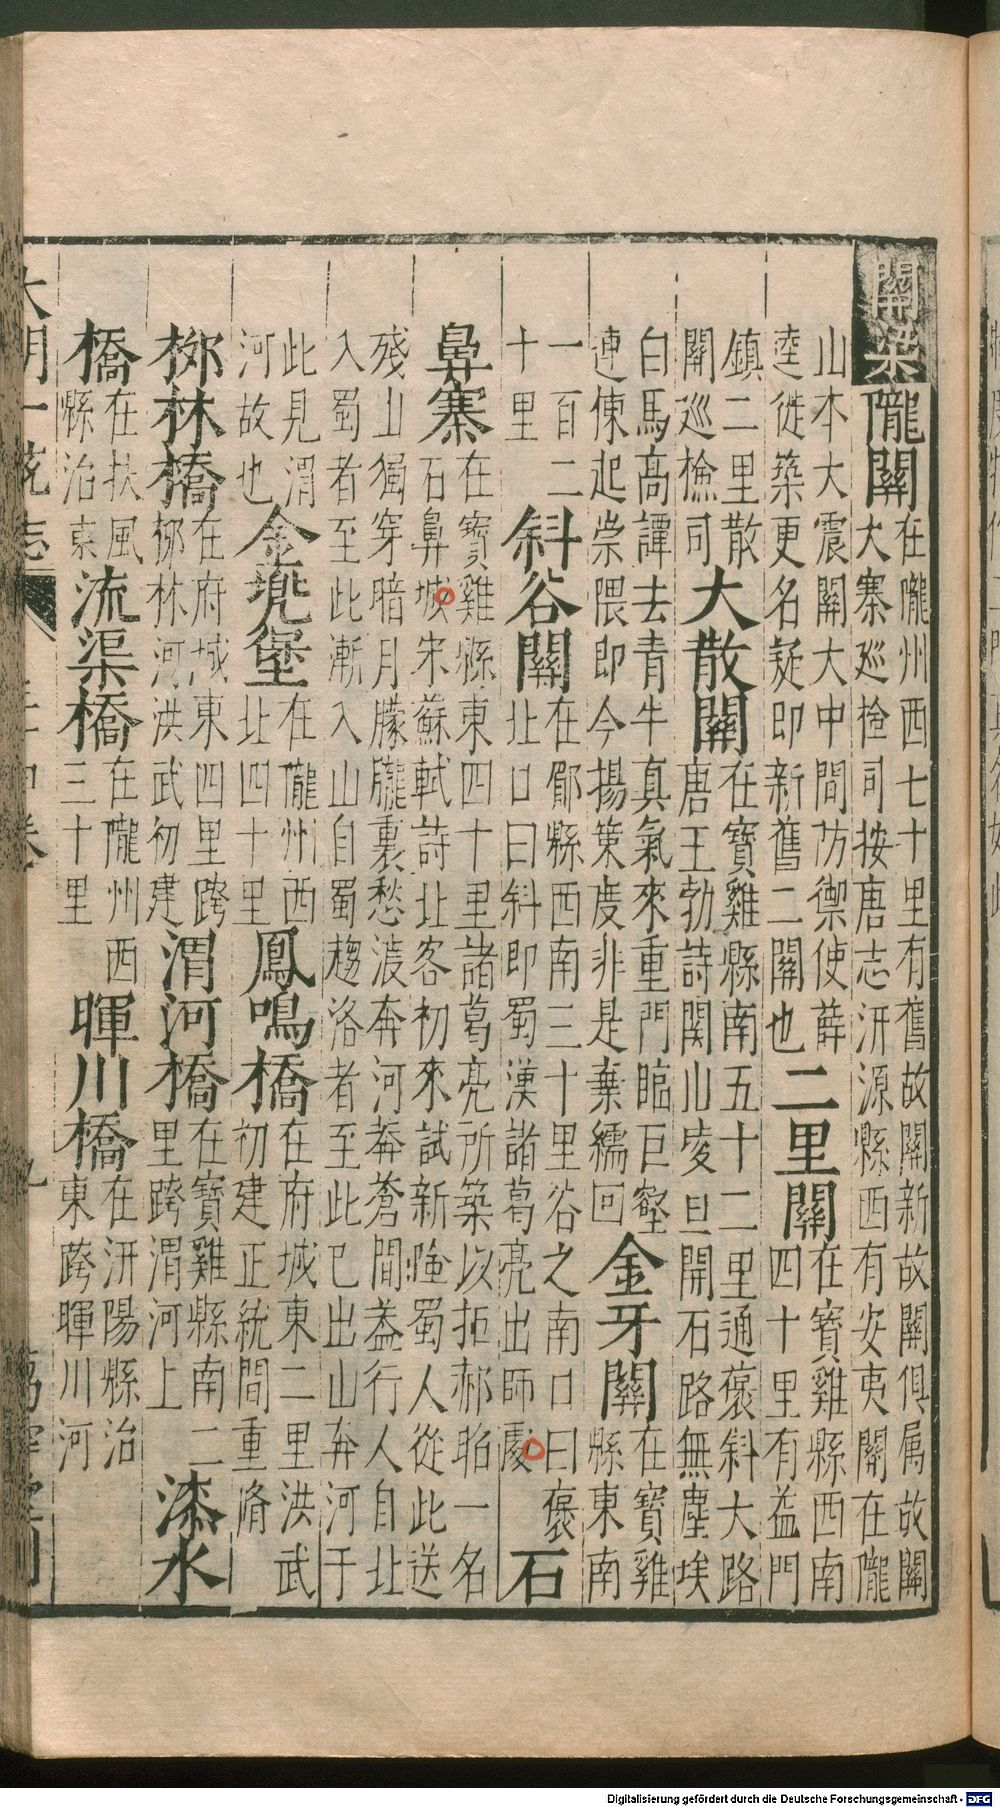 關梁隴關在隴州西七十里有舊故關新故關俱属故關
大寨巡檢司按唐志汧源縣西有安夷關在隴
山本大震關大中間防禦使薛
逵徙築更名疑即新舊二關也二里關在寳雞縣西南
四十里有益門
鎮二里散
關巡檢司大散關在寳雞縣南五十二里通褒斜大路
唐王勃詩關山凌旦開石路無塵埃
白馬高譚去青牛真氣來重門臨巨壑
連倲起崇隈即今揚策度非是棄繻回金牙關在寳雞
縣東南
一百二
十里斜谷關在郿縣西南三十里谷之南口曰褒
北口曰斜即蜀漢諸葛亮出師處石
鼻寨在寳雞縣東四十里諸葛亮所築以拒郝昭一名
石鼻城宋蘇軾詩北客初來試新險蜀人從此送
殘山獨穿暗月朦朧裏愁渡奔河莽蒼間盖行人自北
入蜀者至此漸入山自蜀趨洛者至此已出山奔河于
此見渭
河故也金兠堡在隴州西
北四十里鳳鳴橋在府城東二里洪武
初建正統間重脩
栁林橋在府城東四里跨
栁林河洪武初建渭河橋在寳雞縣南二
里跨渭河上漆水
橋在扶風
縣治東流渠橋在隴州西
三十里暉川橋在汧陽縣治
東跨暉川河
大明一統志
Digitalisierung gefördert durch die Deutsche Forschungsgemeinschaft - DFG